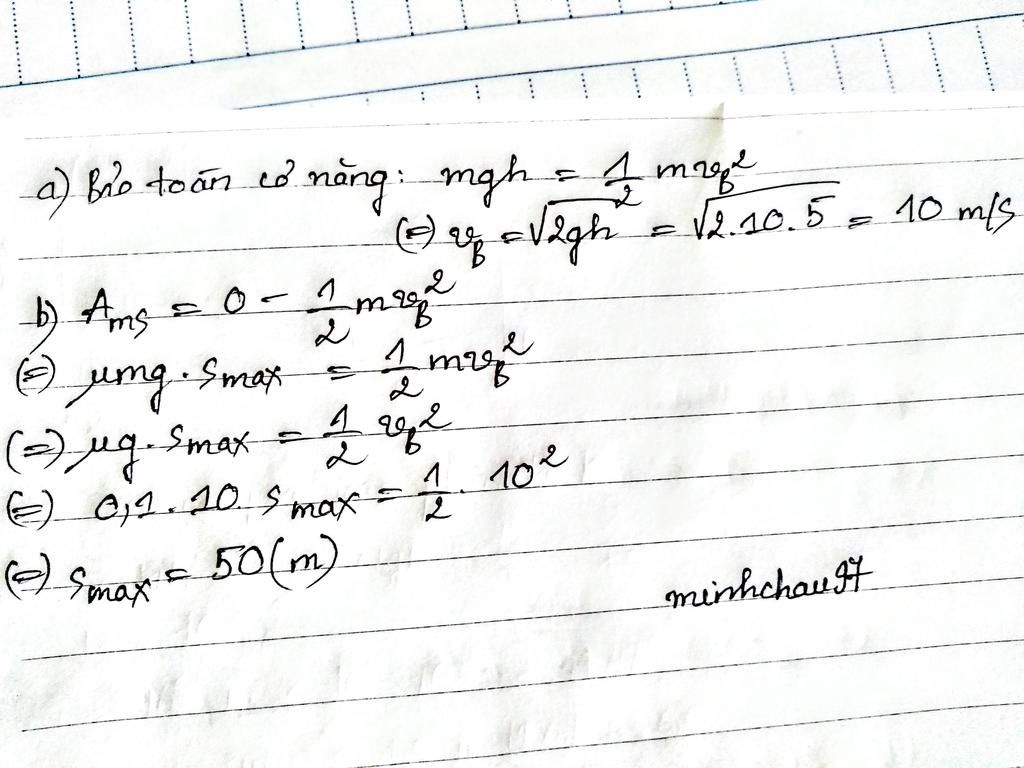 a) Bảo toàn cơ năng: mgh = 1/2 mv_B²
(=) v_B = √2gh = √2.10.5 = 10 m/s
b) A_ms = 0 - 1/2 mv_B²
(=) μmg . s_max = 1/2 mv_B²
(=) μg . s_max = 1/2 v_B²
(=) 0,1 . 10. s_max = 1/2 . 10²
(=) s_max = 50 (m)
minhchau97